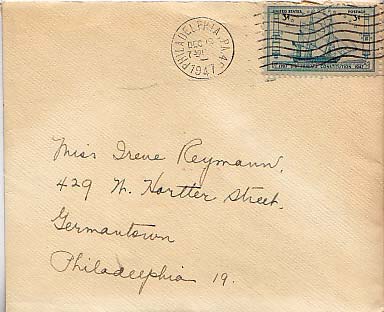 PHILADELPHIA, PA.
DEC
1947
UNITED STATES POSTAGE
3¢ 3¢
CONSTITUTION
Miss Irene Reymann,
429 W. Hortter Street,
Germantown
Philadelphia 19.